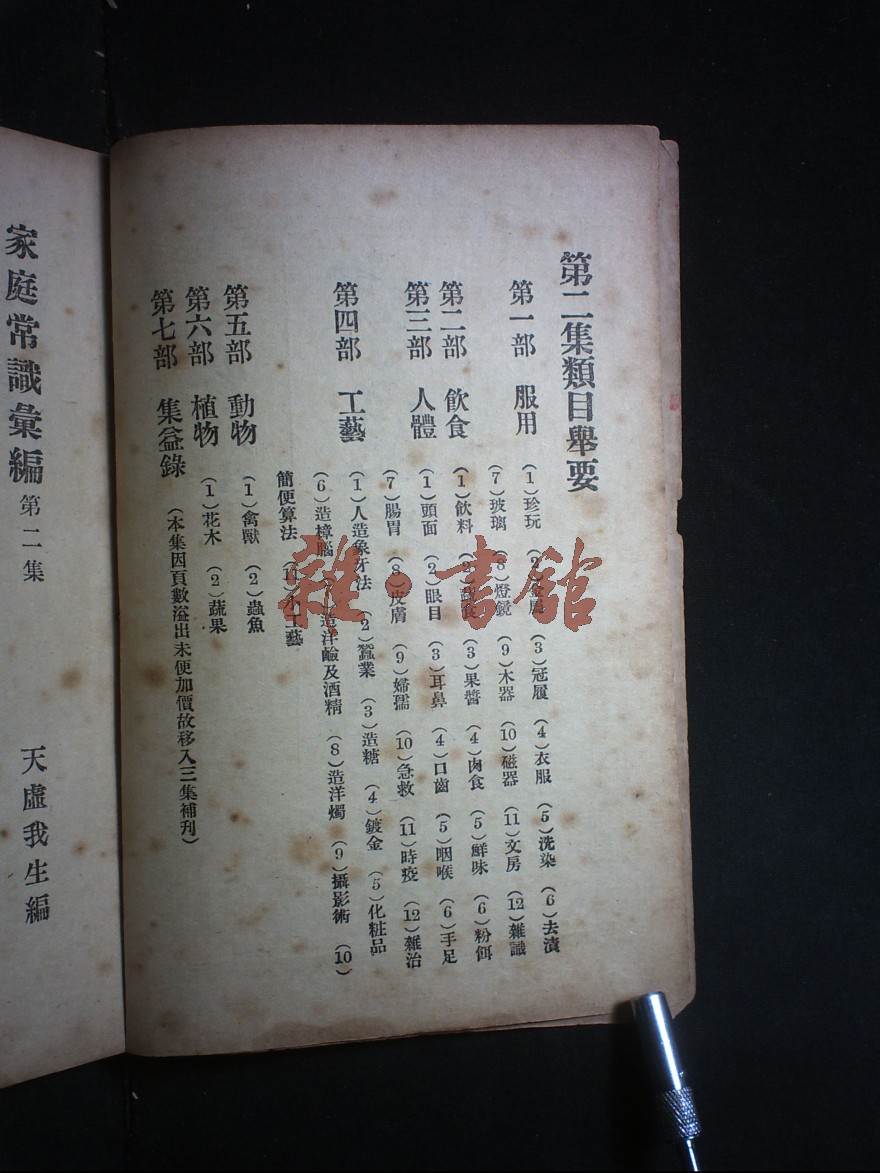 第二集類目舉要
第一部 服用 (1)珍玩 (2)金屬 (3)冠履 (4)衣服 (5)洗染 (6)去漬
(7)玻璃 (8)燈鏡 (9)木器 (10)磁器 (11)文房 (12)雜識
第二部 飲食 (1)飲料 (2)蔬食 (3)果醬 (4)肉食 (5)鮮味 (6)粉餌
第三部 人體 (1)頭面 (2)眼目 (3)耳鼻 (4)口齒 (5)咽喉 (6)手足
(7)腸胃 (8)皮膚 (9)婦孺 (10)急救 (11)時疫 (12)雜治
第四部 工藝 (1)人造象牙法 (2)蠶業 (3)造糖 (4)鍍金 (5)化粧品
(6)造樟腦 (7)造洋鹼及酒精 (8)造洋燭 (9)攝影術 (10)
簡便算法 (11)小工藝
第五部 動物 (1)禽獸 (2)蟲魚
第六部 植物 (1)花木 (2)蔬果
第七部 集益錄 (本集因頁數溢出未便加價故移入三集補刋)
家庭常識彙編 第二集
天虛我生編
雜·書館